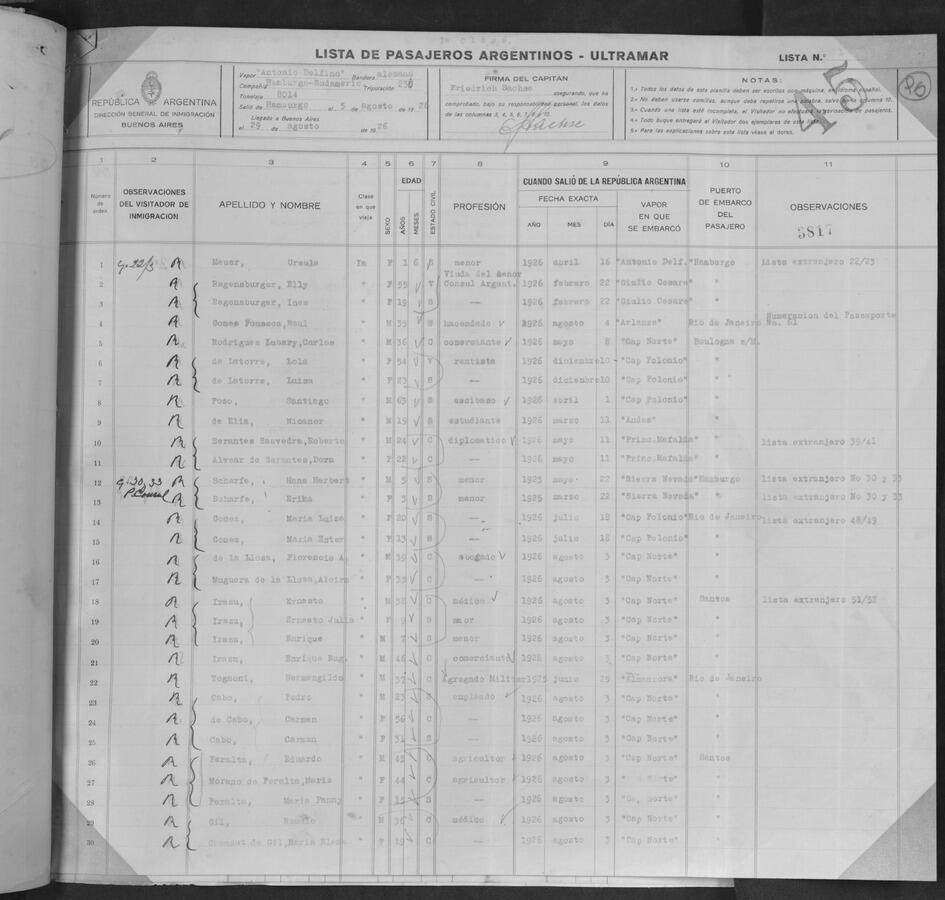 LISTA DE PASAJEROS ARGENTINOS - ULTRAMAR
LISTA N.°
45
26
REPÚBLICA ARGENTINA
DIRECCIÓN GENERAL DE INMIGRACIÓN
BUENOS AIRES
Vapor "Antonio Delfino" Bandera alemana
Compañía Hamburgo-Sudameric. Tripulación
Tonelaje 8014
Salió de Hamburgo el 5 de Agosto de 1926
Llegado a Buenos Aires
el 29 de agosto de 1926
FIRMA DEL CAPITAN
Friedrich Sachse asegurando, que ha
comprobado, bajo su responsabilidad personal, los datos
de las columnas 3, 4, 5, 6, 7, 8, 9, 10.
NOTAS:
1.ª Todos los datos de esta planilla deben ser escritos con máquina, en idioma español.
2.ª No deben usarse comillas, aunque deba repetirse una palabra, salvo columna 10.
3.ª Cuando una lista esté incompleta, el Visitador no efectuará
4.ª Todo buque entregará al Visitador dos ejemplares de esta lista.
5.ª Para las explicaciones sobre esta lista véase al dorso.
1 2 3 4 5 6 7 8 9 10 11
Número de orden
OBSERVACIONES DEL VISITADOR DE INMIGRACIÓN
APELLIDO Y NOMBRE
Clase en que viaja
SEXO
EDAD
AÑOS
MESES
ESTADO CIVIL
PROFESIÓN
CUANDO SALIÓ DE LA REPÚBLICA ARGENTINA
FECHA EXACTA
AÑO MES DÍA
VAPOR EN QUE SE EMBARCÓ
PUERTO DE EMBARCO DEL PASAJERO
OBSERVACIONES
3817
1 Meuer, Ursula 1a F 1 6 S menor 1926 abril 16 "Antonio Delf." Hamburgo Lista extranjero 22/23
Viuda del menor
2 Regensburger, Elly " F 55 V Consul Argent. 1926 febrero 22 "Giulio Cesare" "
3 Regensburger, Ines " F 19 S — 1926 febrero 22 "Giulio Cesare" "
Numeracion del Pasaporte
4 Gomes Fonseca, Raul " M 35 S hacendado 1926 agosto 4 "Arlanza" Rio de Janeiro No. 61
5 Rodriguez Lubary, Carlos " M 36 C comerciante 1926 mayo 8 "Cap Norte" Boulogne s/M.
6 de Latorre, Lola " F 54 V rentista 1926 diciembre 10 "Cap Polonio" "
7 de Latorre, Luisa " F 23 S — 1926 diciembre 10 "Cap Polonio" "
8 Poso, Santiago " M 63 S escibano 1926 abril 1 "Cap Polonio" "
9 de Elia, Nicanor " M 19 S estudiante 1926 marzo 11 "Andes" "
10 Serantes Saavedra, Roberto " M 24 C diplomatico 1926 mayo 11 "Princ.Mafalda" " lista extranjero 39/41
11 Alvear de Serantes, Dora " F 22 C — 1926 mayo 11 "Princ.Mafalda" "
12 Scharfe, Hans Herbert " M 5 S menor 1925 mayo 22 "Sierra Nevada" Hamburgo lista extranjero No 30 y 33
13 Scharfe, Erika " F 3 S menor 1925 marzo 22 "Sierra Nevada" " lista extranjero No 30 y 33
14 Gomez, Maria Luisa " F 20 S — 1926 julio 18 "Cap Polonio" Rio de Janeiro lista extranjero 48/49
15 Gomez, Maria Ester " F 13 S — 1926 julio 18 "Cap Polonio" "
16 de la Llosa, Florencio A. " M 39 C abogado 1926 agosto 3 "Cap Norte" "
17 Muguera de la Llosa, " F 33 C — 1926 agosto 3 "Cap Norte" "
18 Irazu, Ernesto " M 38 C médico 1926 agosto 3 "Cap Norte" Santos lista extranjero 51/52
19 Irazu, Ernesto Julio " F 9 S 1926 agosto 3 "Cap Norte" "
20 Irazu, Enrique " M 7 S menor 1926 agosto 3 "Cap Norte" "
21 Irazu, Enrique Eug. " M 46 C comerciante 1926 agosto 3 "Cap Norte" "
22 Tognoni, Hermengildo " M 37 C Agregado Militar 1925 junio 25 "Almanzora" Rio de Janeiro
23 Cabo, Pedro " M 23 S empleado 1926 agosto 3 "Cap Norte" "
24 de Cabo, Carmen " F 56 C — 1926 agosto 3 "Cap Norte" "
25 Cabo, Carmen " F 31 S — 1926 agosto 3 "Cap Norte" "
26 Peralta, Eduardo " M 45 C agricultor 1926 agosto 3 "Cap Norte" Santos
27 Moreno de Peralta, Maria " F 44 C agricultor 1926 agosto 3 Norte" "
28 Peralta, Maria Fanny " F 15 S — 1926 agosto 3 Norte" "
29 Gil, " M 36 C médico 1926 agosto 3 "Cap Norte" "
30 de Gil, Maria Elena " F 19 C — 1926 agosto 3 "Cap Norte" "
1 2 3 4 5 6 7 8 9 10